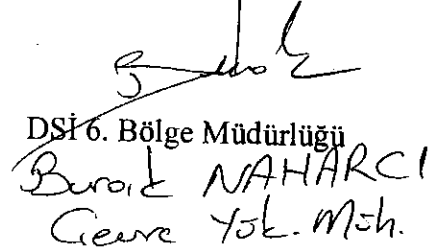 DSİ 6. Bölge Müdürlüğü
Burak NAHARCI
Çevre Yük. Müh.